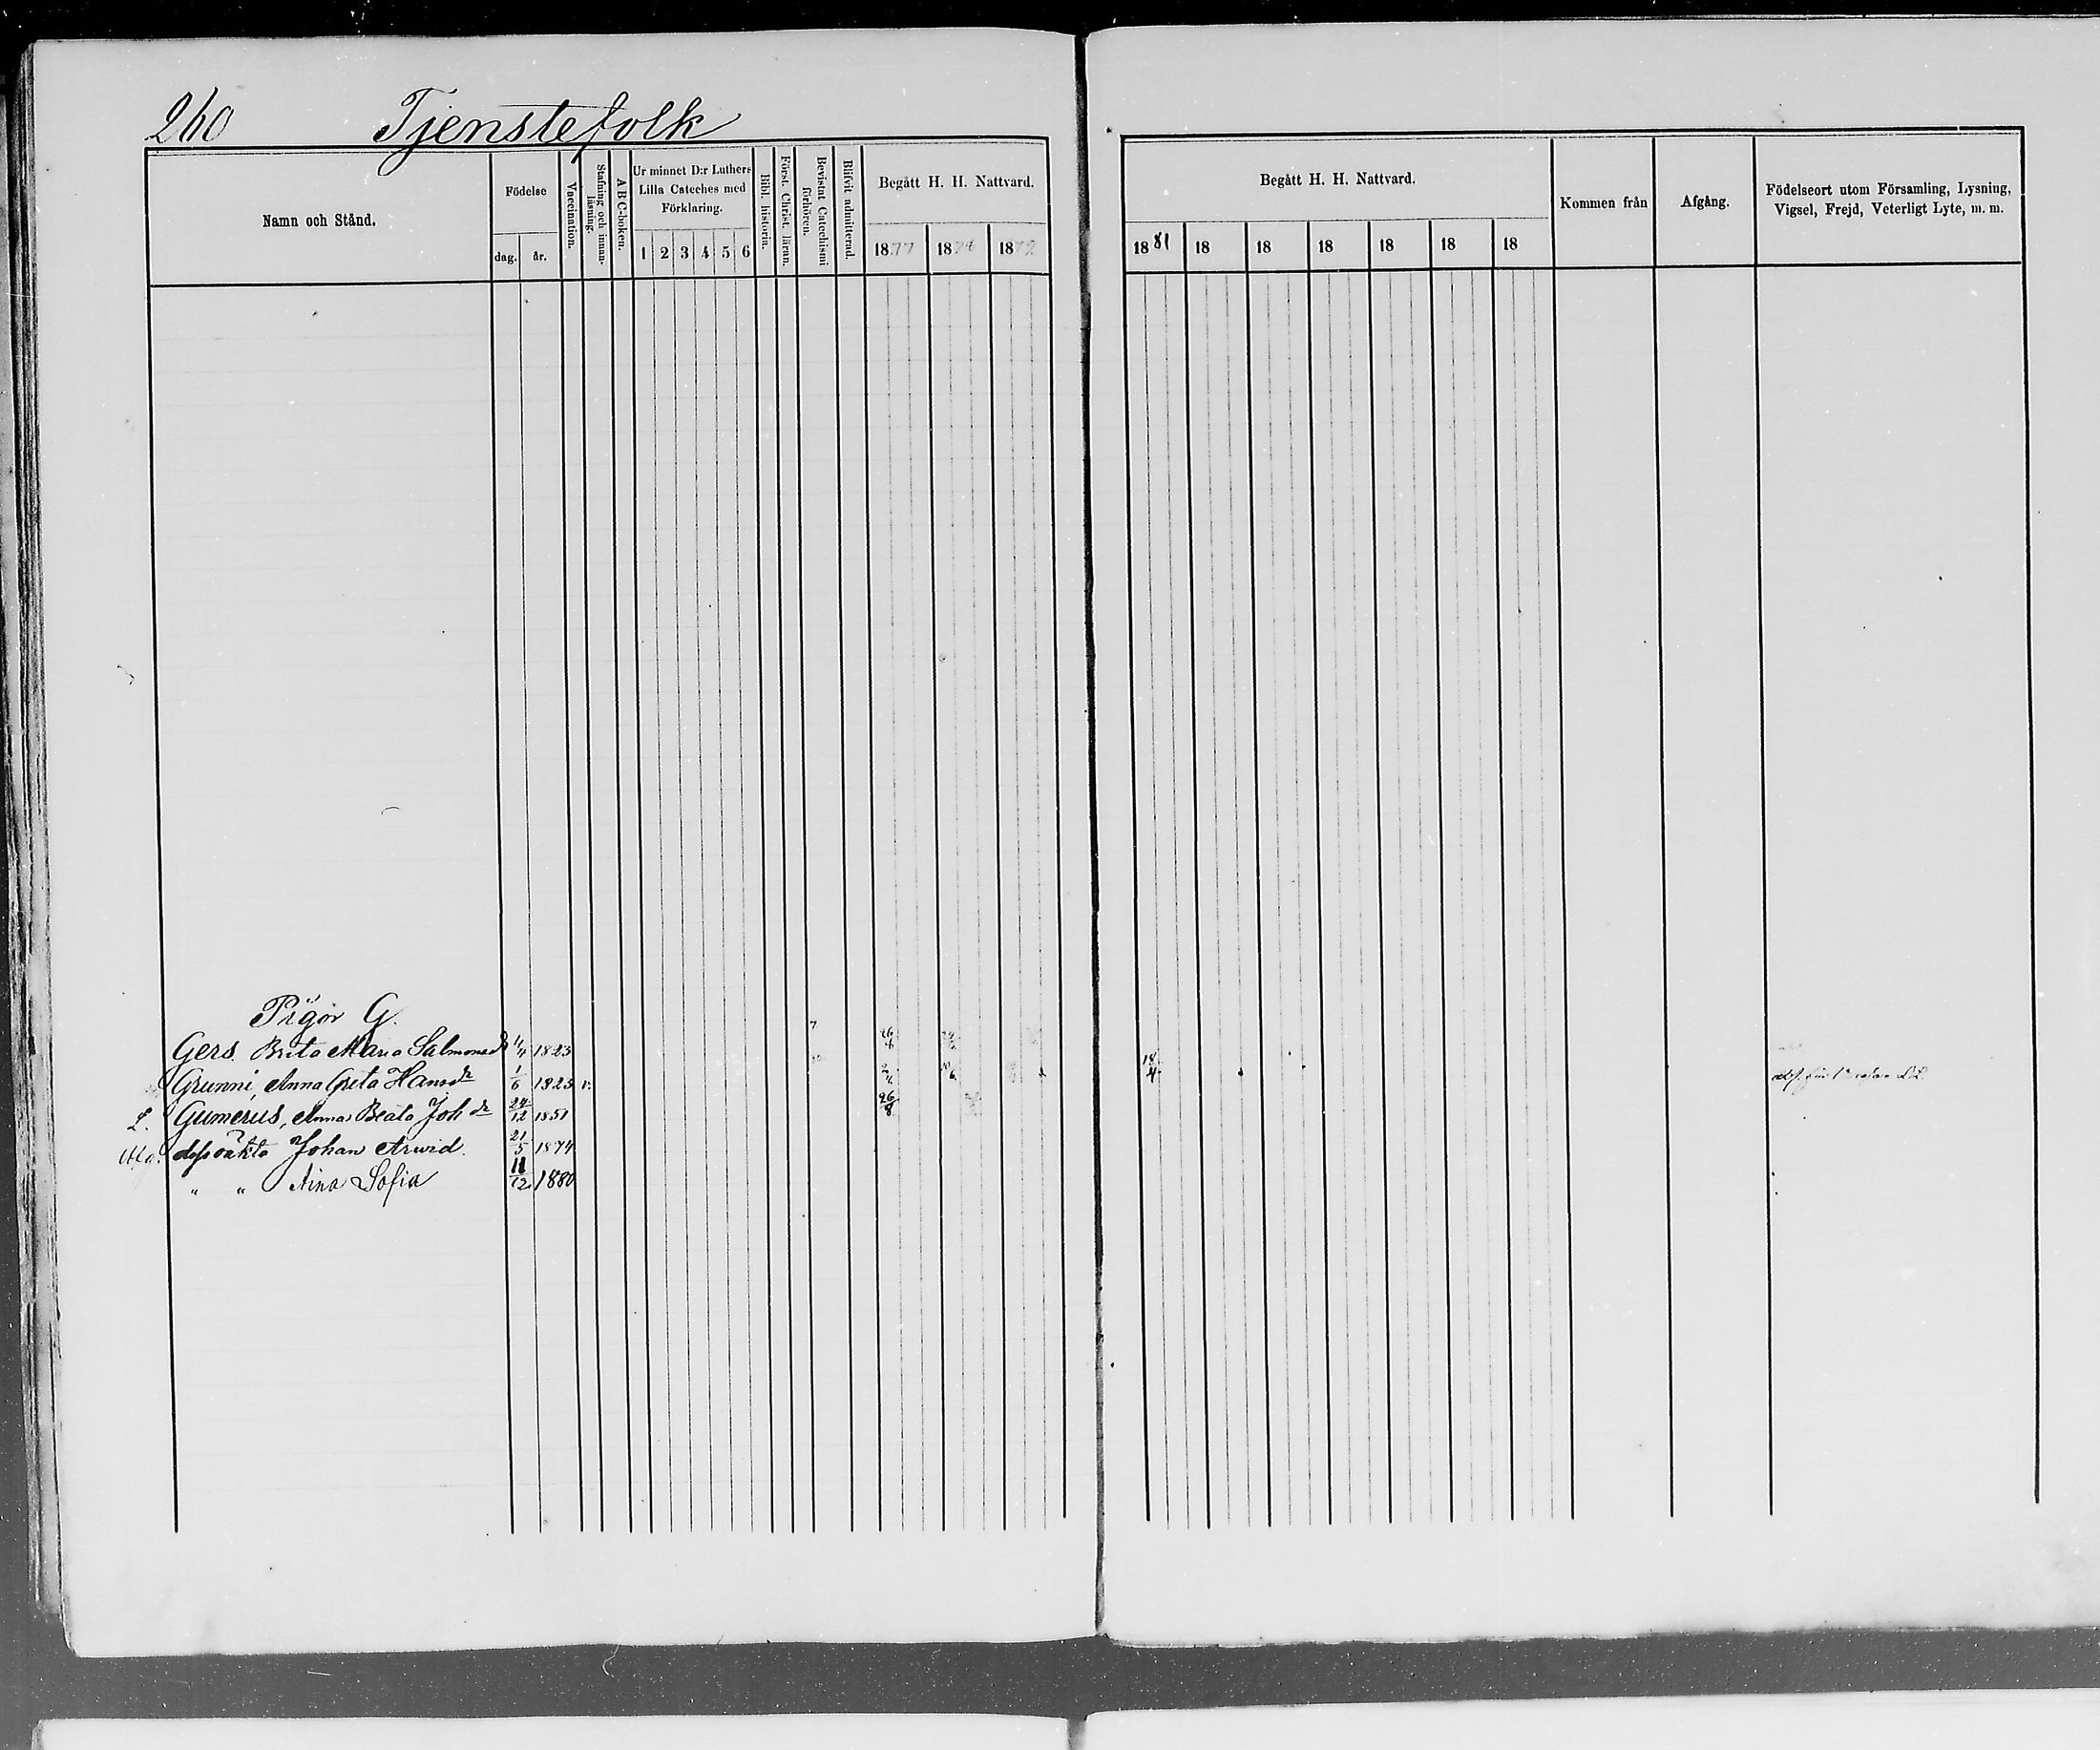 260 Tjenstefolk
Namn och Stånd.
Födelse
dag. år.
Vaccination.
Stafning och innan-
läsning.
A B C-boken.
Ur minnet D:r Luthers
Lilla Cateches med
Förklaring.
1 2 3 4 5 6
Bibl. historia.
Först. Christ. läran.
Bevistat Catechismi
förhören.
Blifvit admitterad.
Begått H. H. Nattvard.
1877 18 18
Begått H. H. Nattvard.
1881 18 18 18 18 18 18
Kommen från
Afgång.
Födelseort utom Församling, Lysning,
Vigsel, Frejd, Veterligt Lyte, m. m.
Pigor G.
Gers. Brita Maria Salmonsd 4/4 1823
Grunni, Anna Greta Hansdr 1/6 1825 v. 18/4
L. Gumerus, Anna Beata Johdr 24/12 1851 26/8
dess oäkta Johan Arwid. 21/5 1874
" " Aina Sofia 11/12 1880